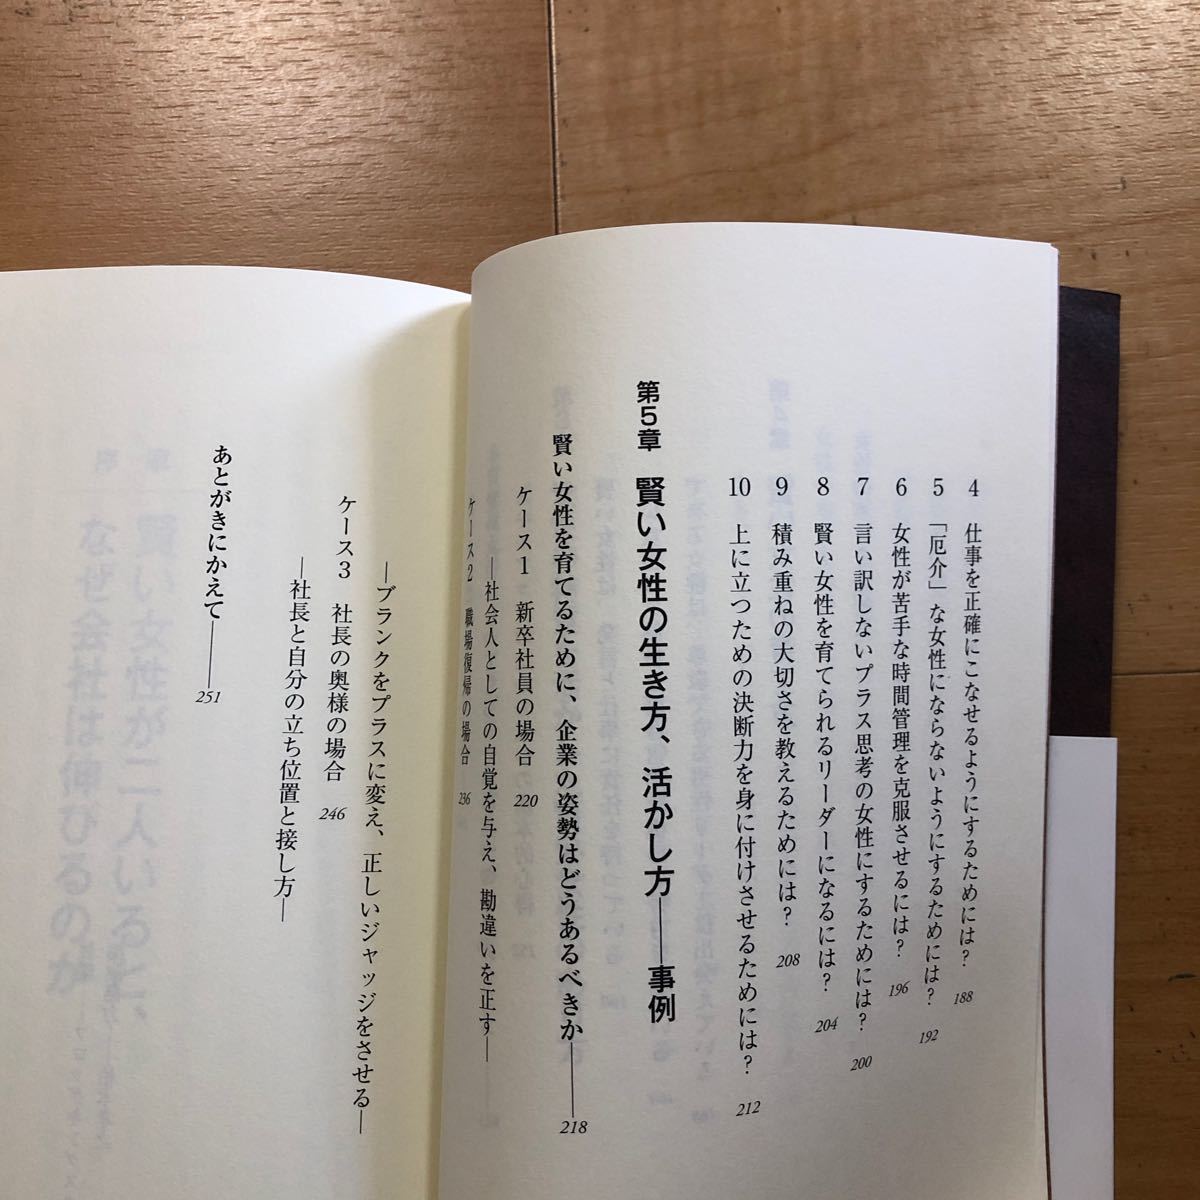 4 仕事を正確にこなせるようにするためには? 188
5 「厄介」な女性にならないようにするためには? 192
6 女性が苦手な時間管理を克服させるには? 196
7 言い訳しないプラス思考の女性にするためには? 200
8 賢い女性を育てられるリーダーになるには? 204
9 積み重ねの大切さを教えるためには? 208
10 上に立つための決断力を身に付けさせるためには? 212
第5章 賢い女性の生き方、活かし方――事例
賢い女性を育てるために、企業の姿勢はどうあるべきか―― 218
ケース1 新卒社員の場合 220
―社会人としての自覚を与え、勘違いを正す―
ケース2 職場復帰の場合 236
―ブランクをプラスに変え、正しいジャッジをさせる―
ケース3 社長の奥様の場合 246
―社長と自分の立ち位置と接し方―
あとがきにかえて―― 251
序章
賢い女性が二人いると、
なぜ会社は伸びるのか